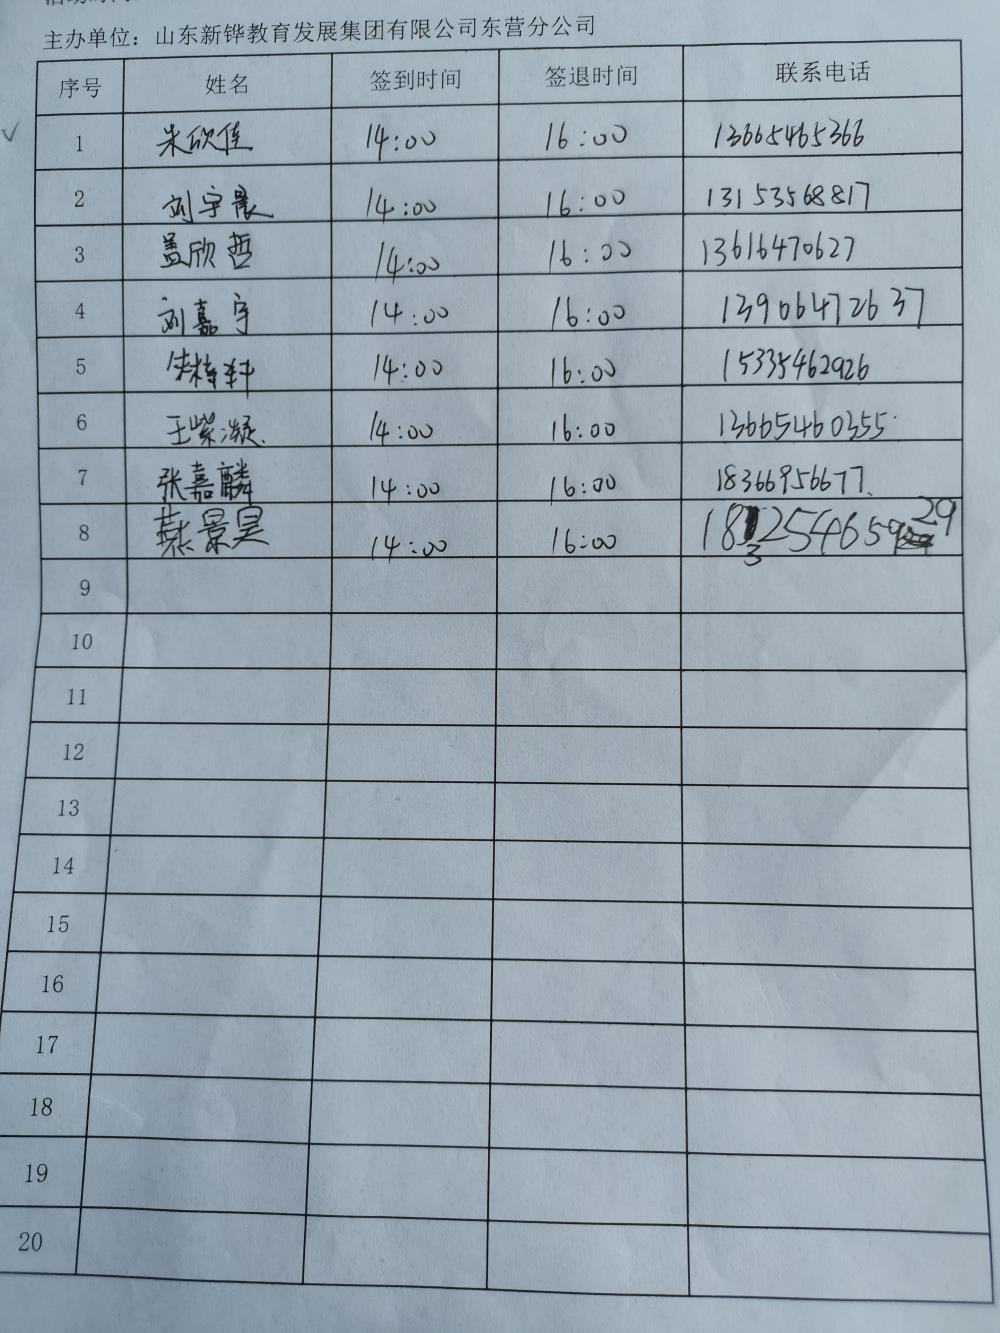 主办单位：山东新铧教育发展集团有限公司东营分公司
序号 姓名 签到时间 签退时间 联系电话
1 朱欣佳 14:00 16:00 13665465366
2 刘宇晨 14:00 16:00 13153568817
3 孟欣哲 14:00 16:00 13616470627
4 刘嘉宇 14:00 16:00 13906472637
5 14:00 16:00 15335462926
6 王紫凝 14:00 16:00 13665460355
7 张嘉麟 14:00 16:00 18366956677
8 景昊 14:00 16:00
9
10
11
12
13
14
15
16
17
18
19
20